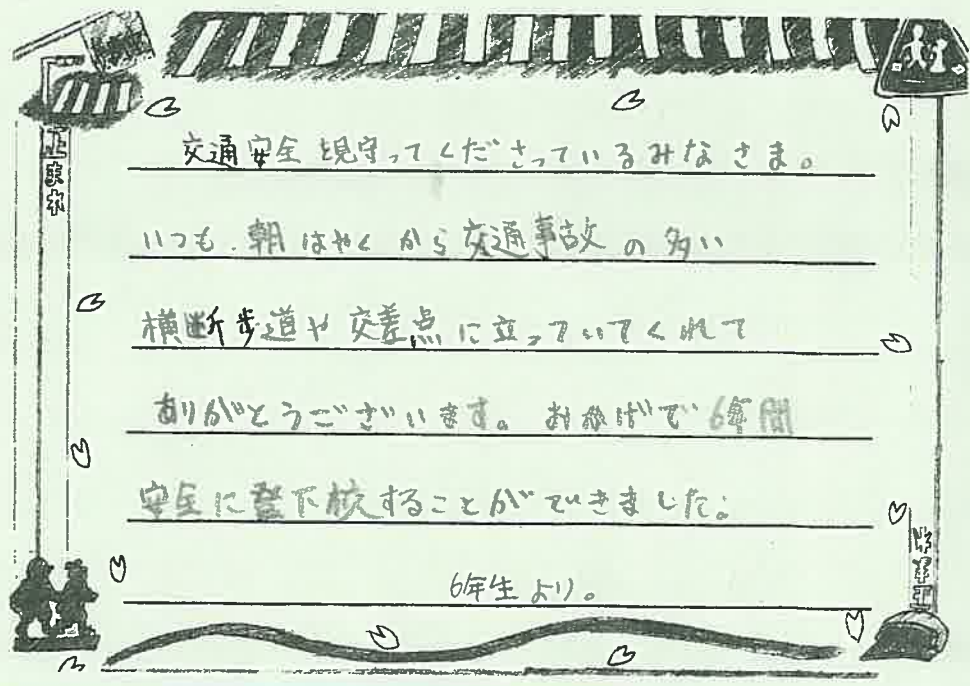 交通安全を見守ってくださっているみなさま。
いつも、朝はやくから交通事故の多い
横断歩道や交差点に立っていてくれて
ありがとうございます。おかげで6年間
安全に登下校することができました。
6年生より。
止まれ
止まれ